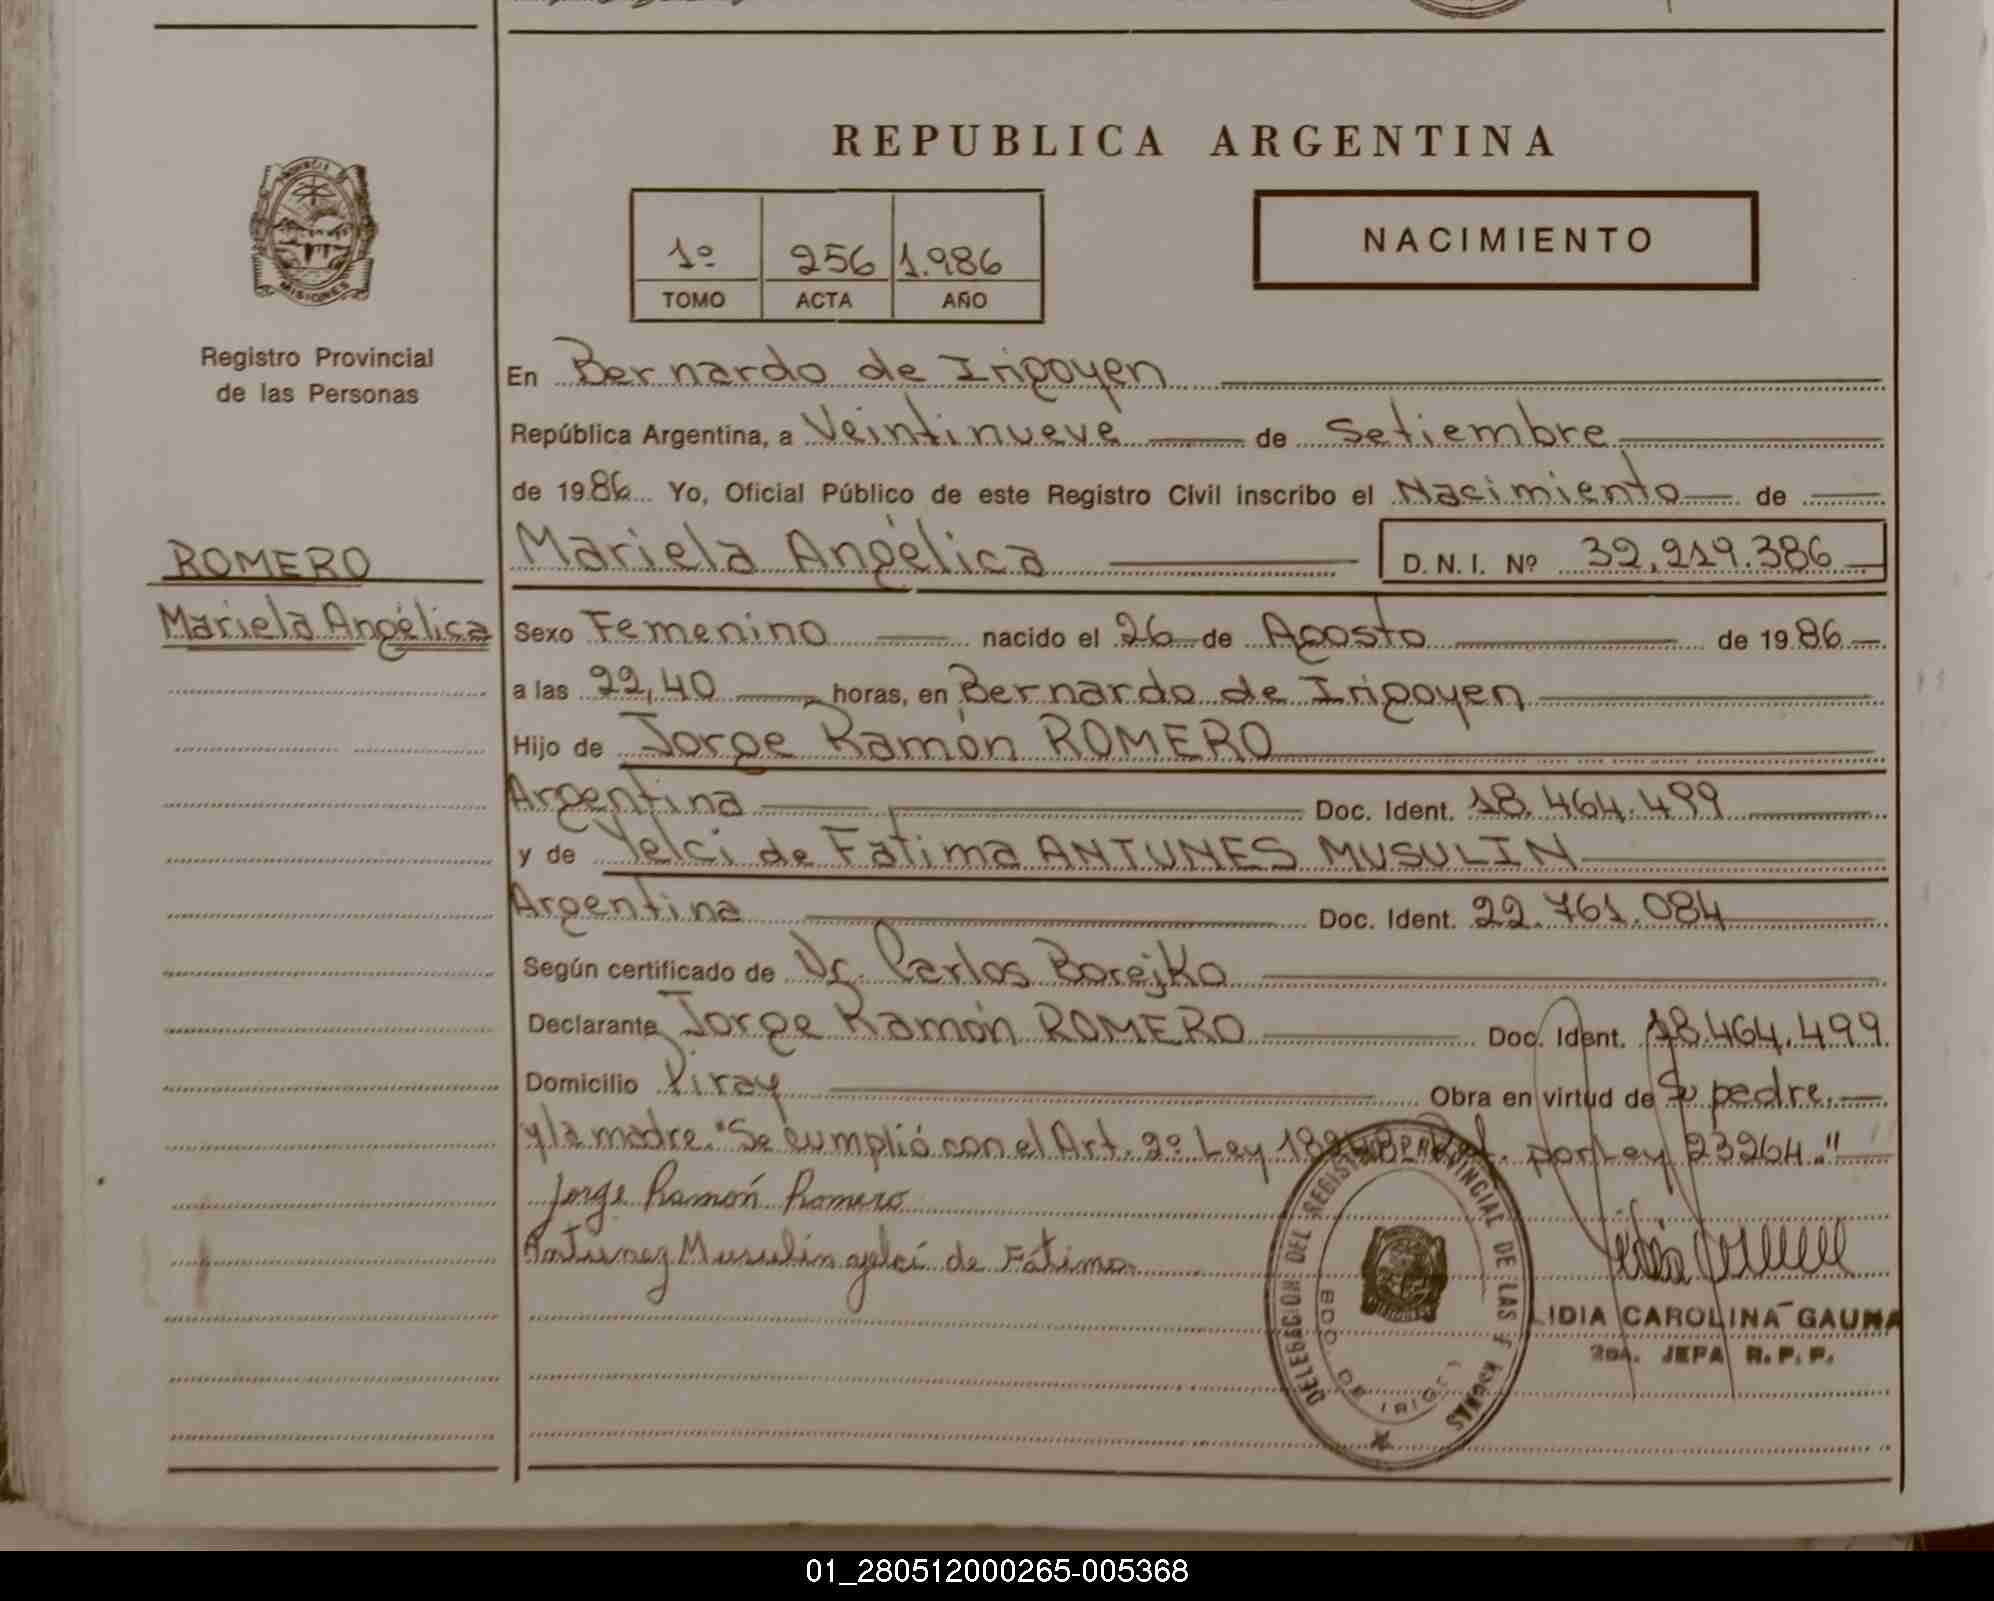 REPUBLICA ARGENTINA
1º 256 1.986
TOMO ACTA AÑO
NACIMIENTO
MISIONES
Registro Provincial
de las Personas
ROMERO
Mariela Angélica
En Bernardo de Irigoyen
República Argentina, a Veintinueve de Setiembre
de 1986 Yo, Oficial Público de este Registro Civil inscribo el Nacimiento de
Mariela Angélica D. N. I. Nº 32,219.386
Sexo Femenino nacido el 26 de Agosto de 1986
a las 22,40 horas, en Bernardo de Irigoyen
Hijo de Jorge Ramón ROMERO
Argentina Doc. Ident. 18.464.499
y de Yelci de Fatima ANTUNES MUSULIN
Argentina Doc. Ident. 22.761.084
Según certificado de Dr. Carlos Borejko
Declarante Jorge Ramón ROMERO Doc. Ident. 18.464.499
Domicilio Piray Obra en virtud de Su padre
y la madre. "Se cumplió con el Art. 2º Ley por Ley 23264."
Jorge Ramón Romero
Antunez Musulin yelci de Fátima
DELEGACION DEL REGISTRO PROVINCIAL DE LAS PERSONAS
BDO. DE IRIG
LIDIA CAROLINA GAUNA
2da. JEFA R. P. P.
01_280512000265-005368